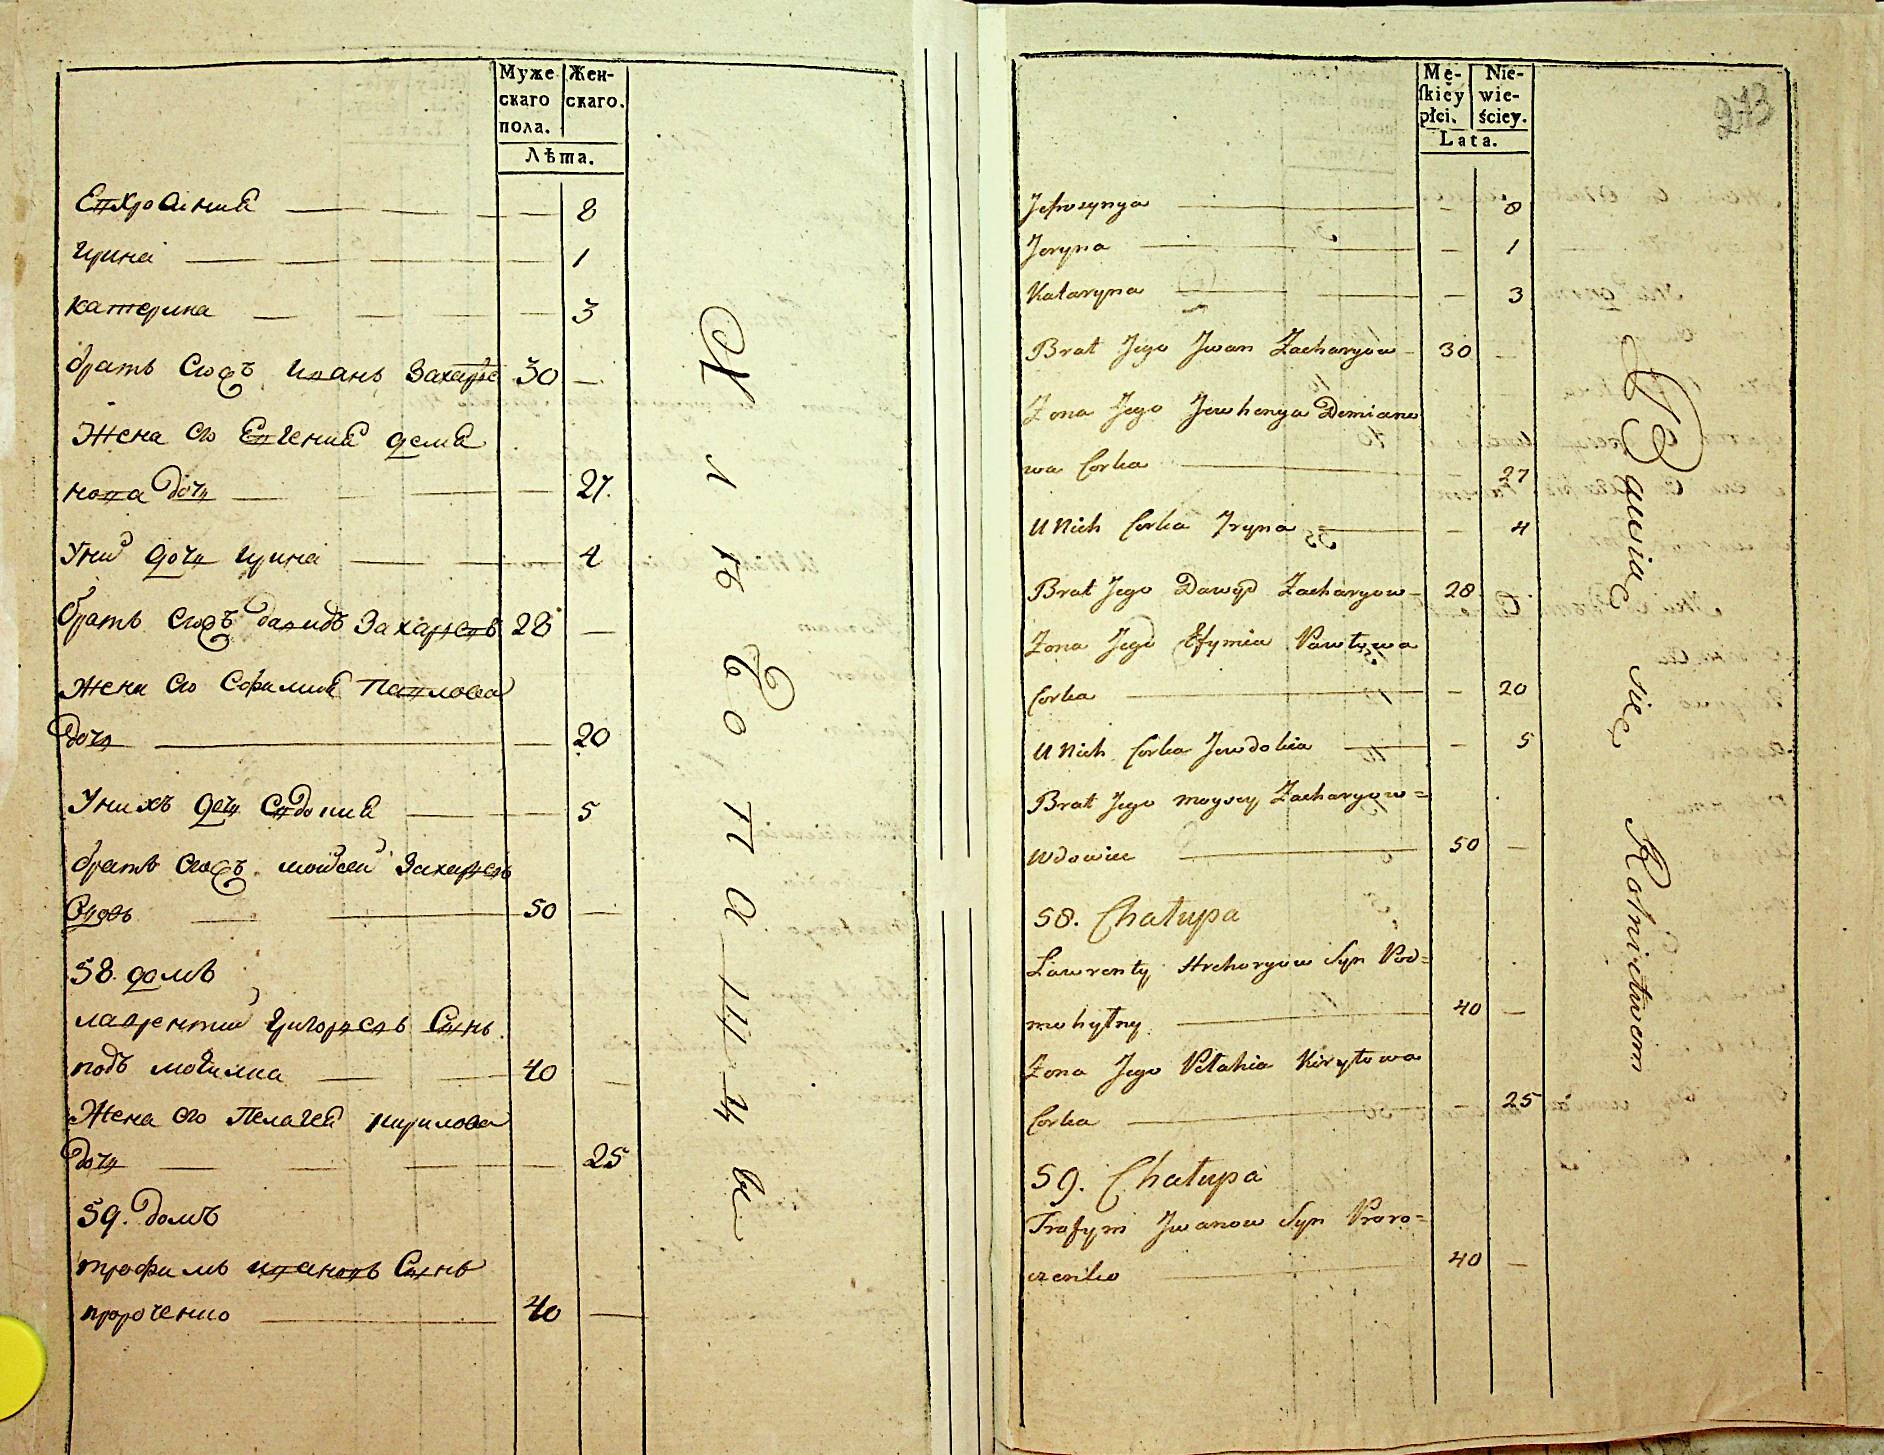 Муже
скаго
пола.
Жен-
скаго.
Лѣта.
Евхросиния 8
Ирина 1
катерина 3
братъ Єгоже Иванъ Захарєв 30 —
Жена єго Евгения демя
нова дочь 27.
Уних дочь Ирина 4
братъ Єгоже давидъ Захарєвъ 28 —
Жена єго Єфимия Павлова
дочь 20
Унихъ дочь Євдокия 5
братъ єгоже моисей Захарєвъ
Вдовъ 50 —
58. домъ
лаврентий Григорєвъ Сынъ
подъ могилна 40 —
Жена єго Пелагея кирилова
дочь 25
59. домъ
трофимъ ивановъ Сынъ
пророченко 40 —
Хлѣбопашцы
Mę-
skiey
płci.
Nie-
wie-
ściey.
Lata.
273
Jefrozynya — 8
Jeryna — 1
Kataryna — 3
Brat Jego Jwan Zacharyow 30 —
Zona Jego Jewhenya Demiano
wa Corka 27
U Nich Corka Jryna — 4
Brat Jego Dawyd Zacharyow 28 —
Zona Jego Efymia Pawłowa
Corka — 20
U Nich Corka Jewdokia — 5
Brat Jego Moysey Zacharyow =
Wdowiec 50 —
58. Chałupa
Lawrenty Hrehoryow Syn Pod=
mohylny 40 —
Zona Jego Pelahia Kiryłowa
Corka — 25
59. Chałupa
Trofym Jwanow Syn Proro=
czenko 40 —
Bawiąc się Rolnictwem